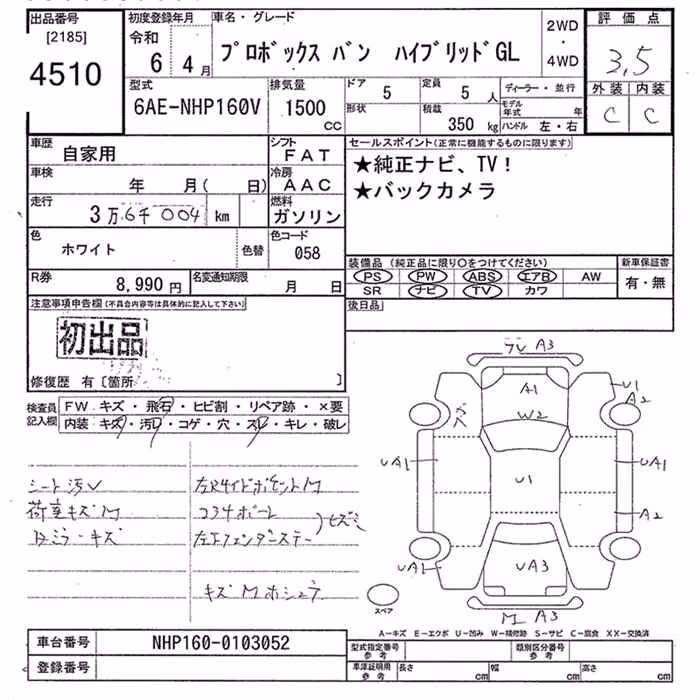 出品番号 初度登録年月 車名・グレード 2WD 評価点
[2185] 令和
4510 6 4月 プロボックス バン ハイブリッドGL ・ 4WD 3,5
型式 排気量 ドア 5 定員 5人 ディーラー・並行 外装 内装
6AE-NHP160V 1500 cc 形状 積載 350 kg モデル年式 年 ハンドル 左・右 C C
車歴 自家用 シフト FAT セールスポイント(正常に機能するものに限ります)
車検 年 月( 日) 冷房 AAC ★純正ナビ、TV!
走行 3万6千004 km 燃料 ガソリン ★バックカメラ
色 ホワイト 色替 色コード 058
装備品 (純正品に限り○をつけてください) 新車保証書
PS PW ABS エアB AW 有・無
R券 8,990円 名変通知期限 月 日 SR ナビ TV カワ
注意事項申告欄(不具合内容等は具体的に記入して下さい) 後日品
初出品
修復歴 有〔箇所 〕
検査員記入欄 FW キズ・飛石・ヒビ割・リペア跡・×要
内装 キズ・汚れ・コゲ・穴・スレ・キレ・破レ
シート汚レ
荷室キズM
Bミラーキズ
キズM
A3
A1
W2
U1
A2
UA1
U1
UA1
A2
UA1
UA3
UA1
A3
スペア
A-キズ E-エクボ U-凹み W-補修跡 S-サビ C-腐食 XX-交換済
車台番号 NHP160-0103052 型式指定番号 参考 類別区分番号 参考
登録番号 車庫証明用 参考 長さ cm 幅 cm 高さ cm